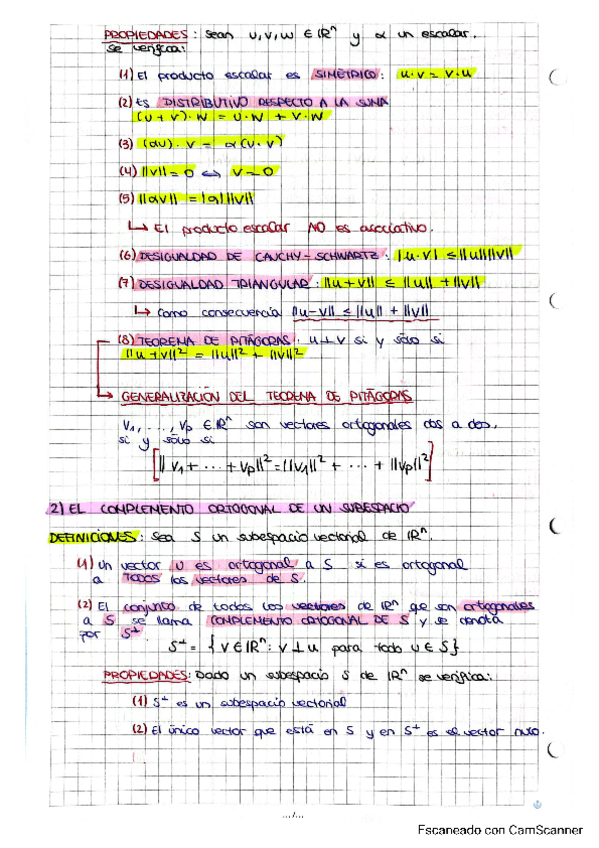 PROPIEDADES: Sean u, v, w ∈ ℝⁿ y α un escalar.
se verifica:
(1) El producto escalar es SIMÉTRICO: u·v = v·u
(2) Es DISTRIBUTIVO RESPECTO A LA SUMA
(u+v)·w = u·w + v·w
(3) (αu)·v = α(u·v)
(4) ||v|| = 0 ↔ v = 0
(5) ||αv|| = |α| ||v||
↳ El producto escalar NO es asociativo.
(6) DESIGUALDAD DE CAUCHY-SCHWARTZ: |u·v| ≤ ||u|| ||v||
(7) DESIGUALDAD TRIANGULAR: ||u+v|| ≤ ||u|| + ||v||
↳ Como consecuencia ||u-v|| ≤ ||u|| + ||v||
(8) TEOREMA DE PITÁGORAS: u⊥v si y sólo si
||u+v||² = ||u||² + ||v||²
GENERALIZACIÓN DEL TEOREMA DE PITÁGORAS
v₁, ..., vp ∈ ℝⁿ son vectores ortogonales dos a dos.
si y sólo si
[|| v₁ + ... + vp||² = ||v₁||² + ... + ||vp||²]
2) EL COMPLEMENTO ORTOGONAL DE UN SUBESPACIO
DEFINICIONES: Sea S un subespacio vectorial de ℝⁿ.
(1) Un vector u es ortogonal a S si es ortogonal
a TODOS los vectores de S.
(2) El conjunto de todos los vectores de ℝⁿ que son ortogonales
a S se llama COMPLEMENTO ORTOGONAL DE S y se denota
por S⊥
S⊥ = { v ∈ ℝⁿ: v ⊥ u para todo u ∈ S}
PROPIEDADES: Dado un subespacio S de ℝⁿ se verifica:
(1) S⊥ es un subespacio vectorial
(2) El único vector que está en S y en S⊥ es el vector nulo.
.../...
Escaneado con CamScanner